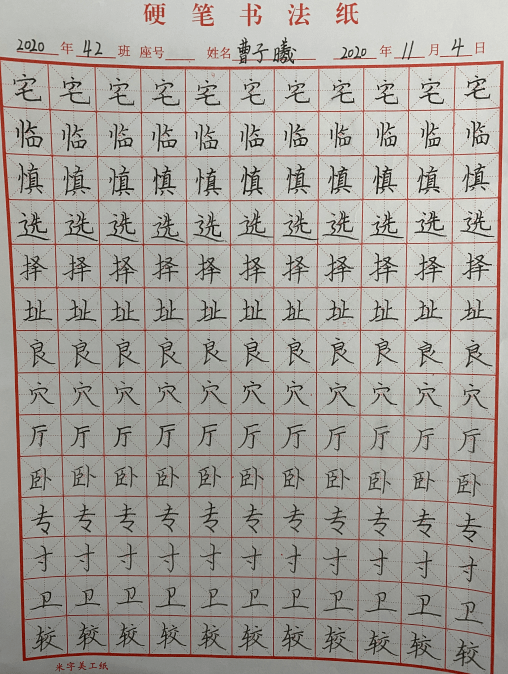 硬笔书法纸
2020年 42班 座号 姓名 曹子曦 2020年 11月 4日
宅宅宅宅宅宅宅宅宅宅宅
临临临临临临临临临临临
慎慎慎慎慎慎慎慎慎慎慎
选选选选选选选选选选选
择择择择择择择择择择择
址址址址址址址址址址址
良良良良良良良良良良良
穴穴穴穴穴穴穴穴穴穴穴
厅厅厅厅厅厅厅厅厅厅厅
卧卧卧卧卧卧卧卧卧卧卧
专专专专专专专专专专专
寸寸寸寸寸寸寸寸寸寸寸
卫卫卫卫卫卫卫卫卫卫卫
较较较较较较较较较较较
米字美工纸